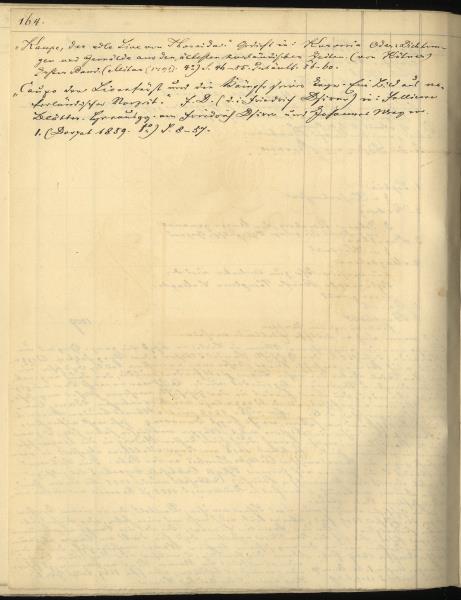 164.
„Kaupo, der edle Live von Thoreida." Gedicht in: Kuronia Oder: Dichtun-
gen und Gemälde aus den ältesten kurländischen Zeiten. (von Kütner)
Erstes Band. (Mitau 1791. 4°) S. 46-55. 56-60.
„Caupo der Livenfürst und die Kämpfe seiner Tage. Ein Bild aus va-
terländischer Vorzeit." F. D. (d. i. Friedrich Dsirne) in: Felliner
Blätter. Herausgg. von Friedrich Dsirne und Johannes Meyer.
1. (Dorpat 1859. 8°.) S. 8-57.